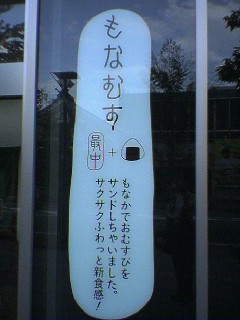 もなむす
最中 +
もなかでおむすびを
サンドしちゃいました。
サクサクふわっと新食感!